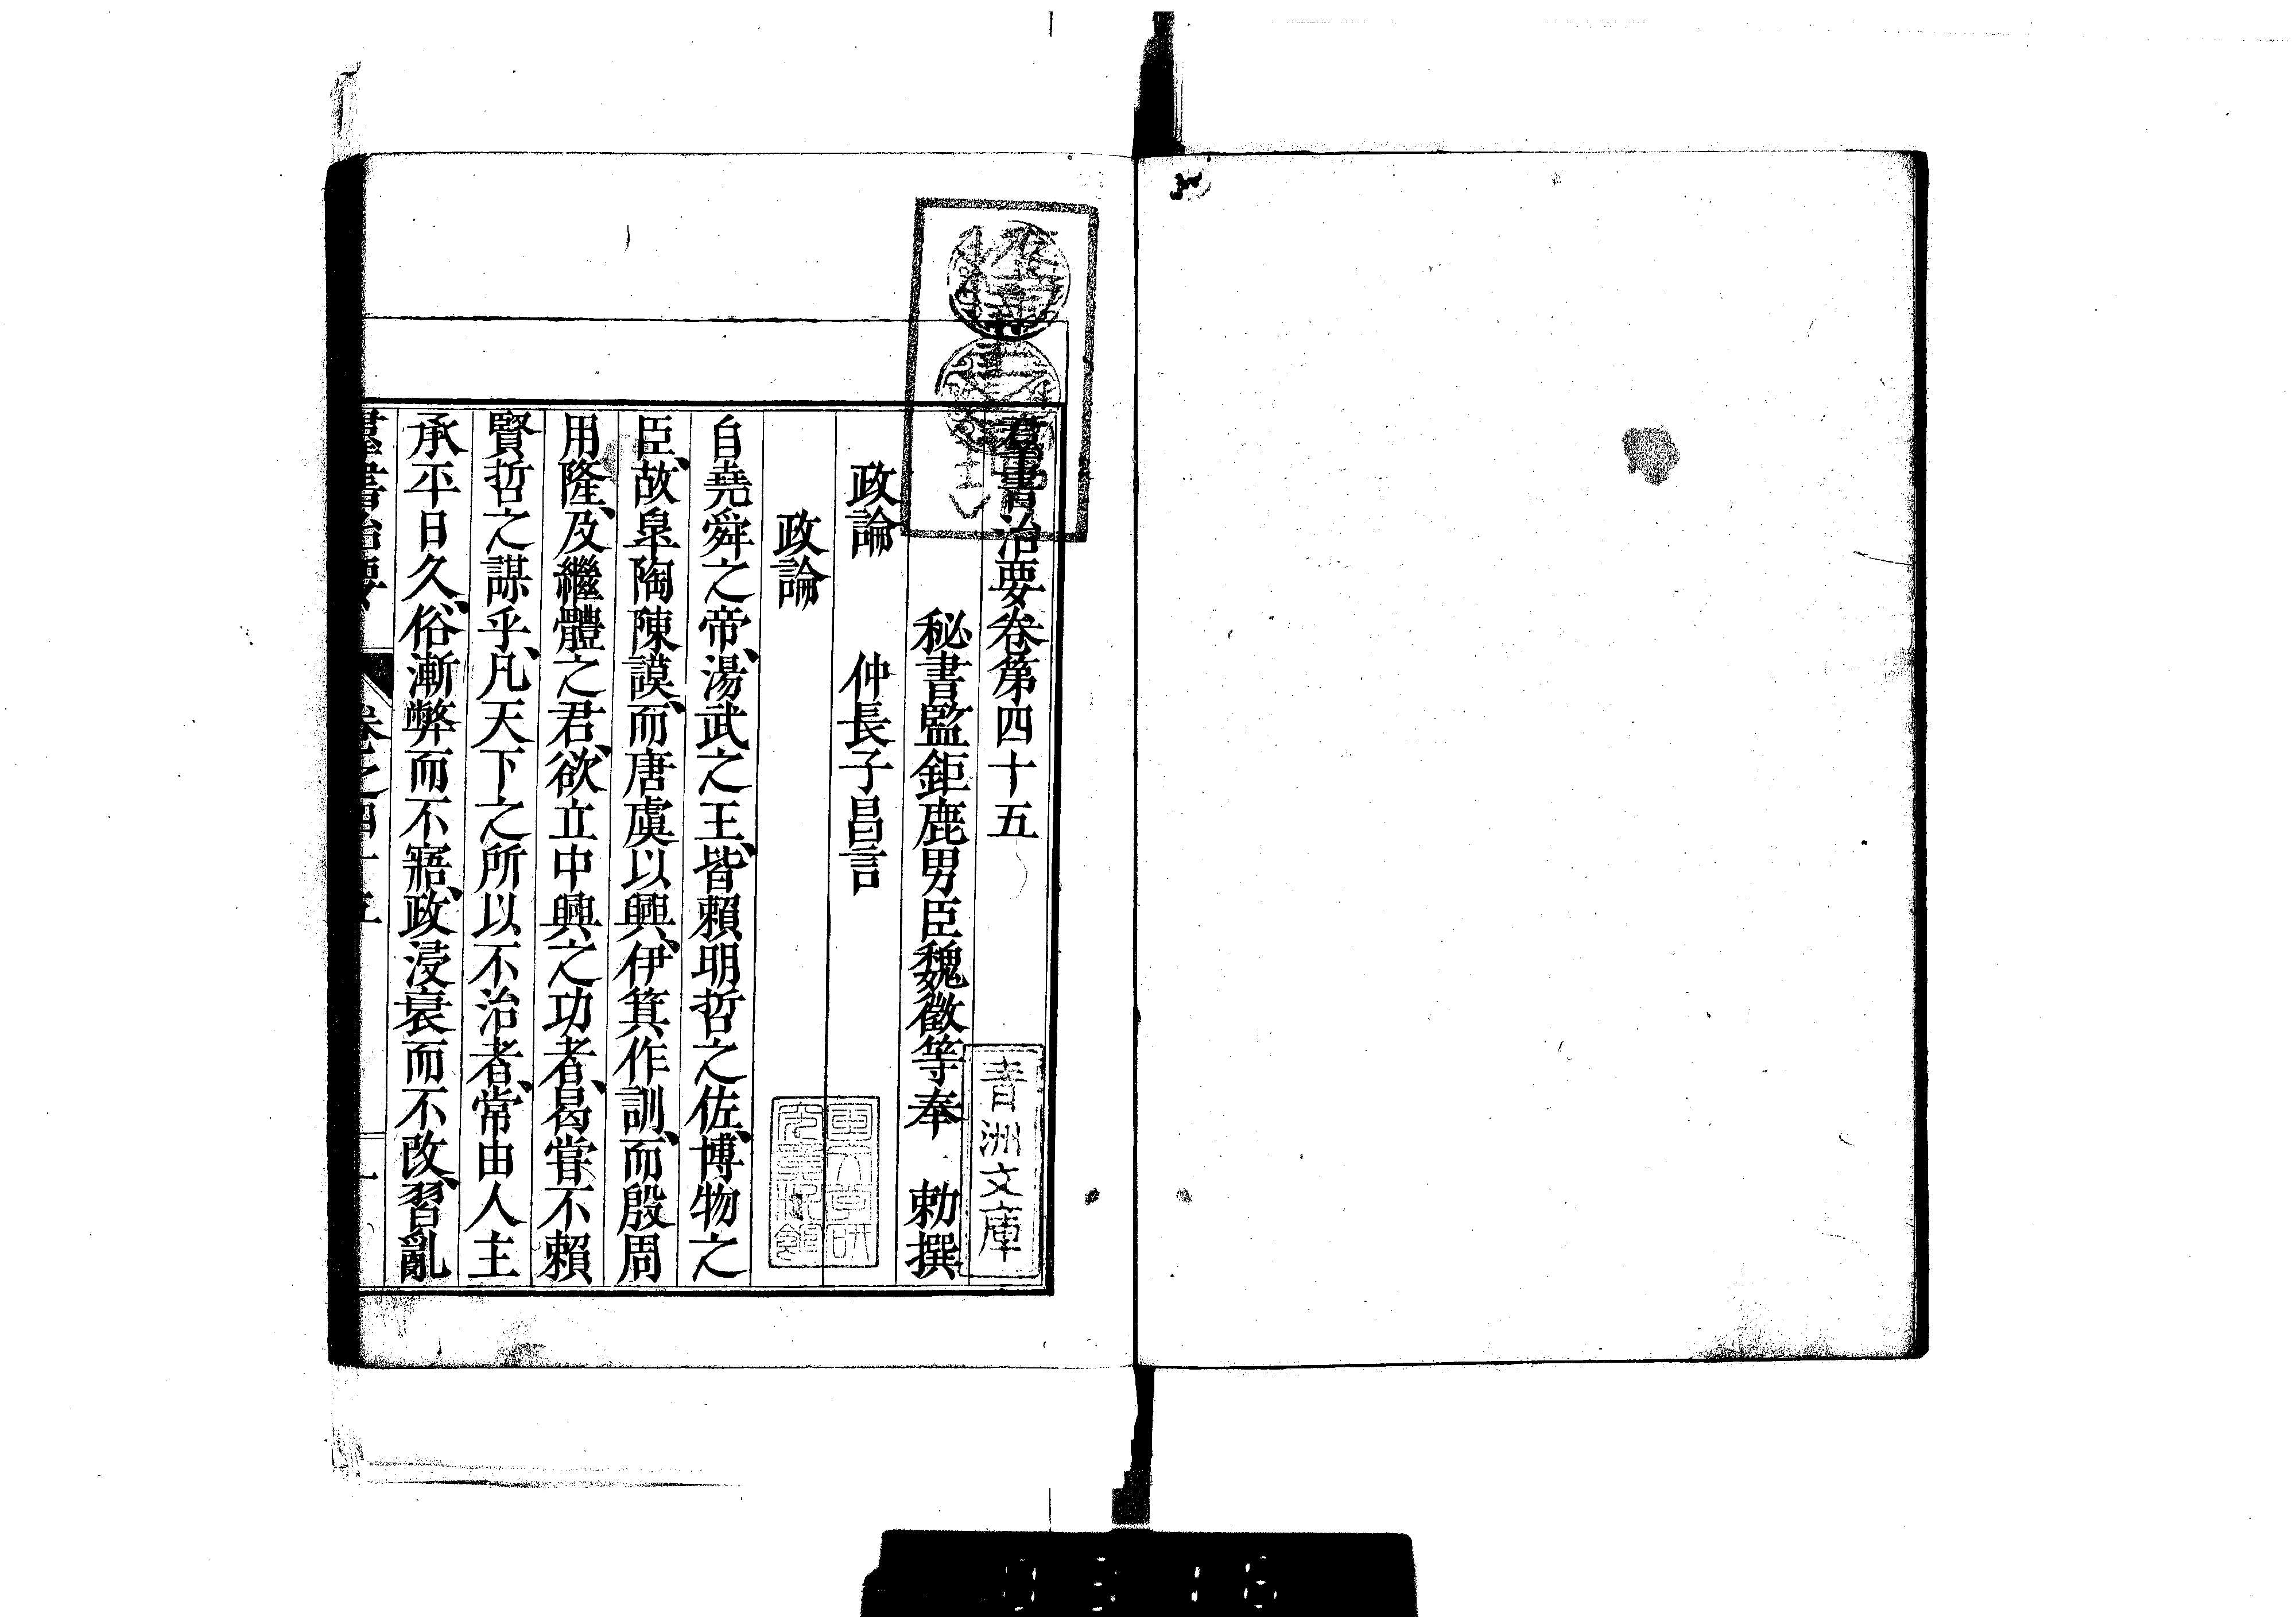 羣書治要卷第四十五
秘書監鉅鹿男臣魏徵等奉　勅撰
政論　仲長子昌言
政論
自堯舜之帝、湯武之王、皆賴明哲之佐、博物之
臣、故皐陶陳謨、而唐虞以興、伊箕作訓、而殷周
用隆、及繼體之君、欲立中興之功者、曷嘗不賴
賢哲之謀乎、凡天下之所以不治者、常由人主
承平日久、俗漸弊而不寤、政浸衰而不改、習亂
羣書治要
卷之四十五
一
青洲文庫
0316